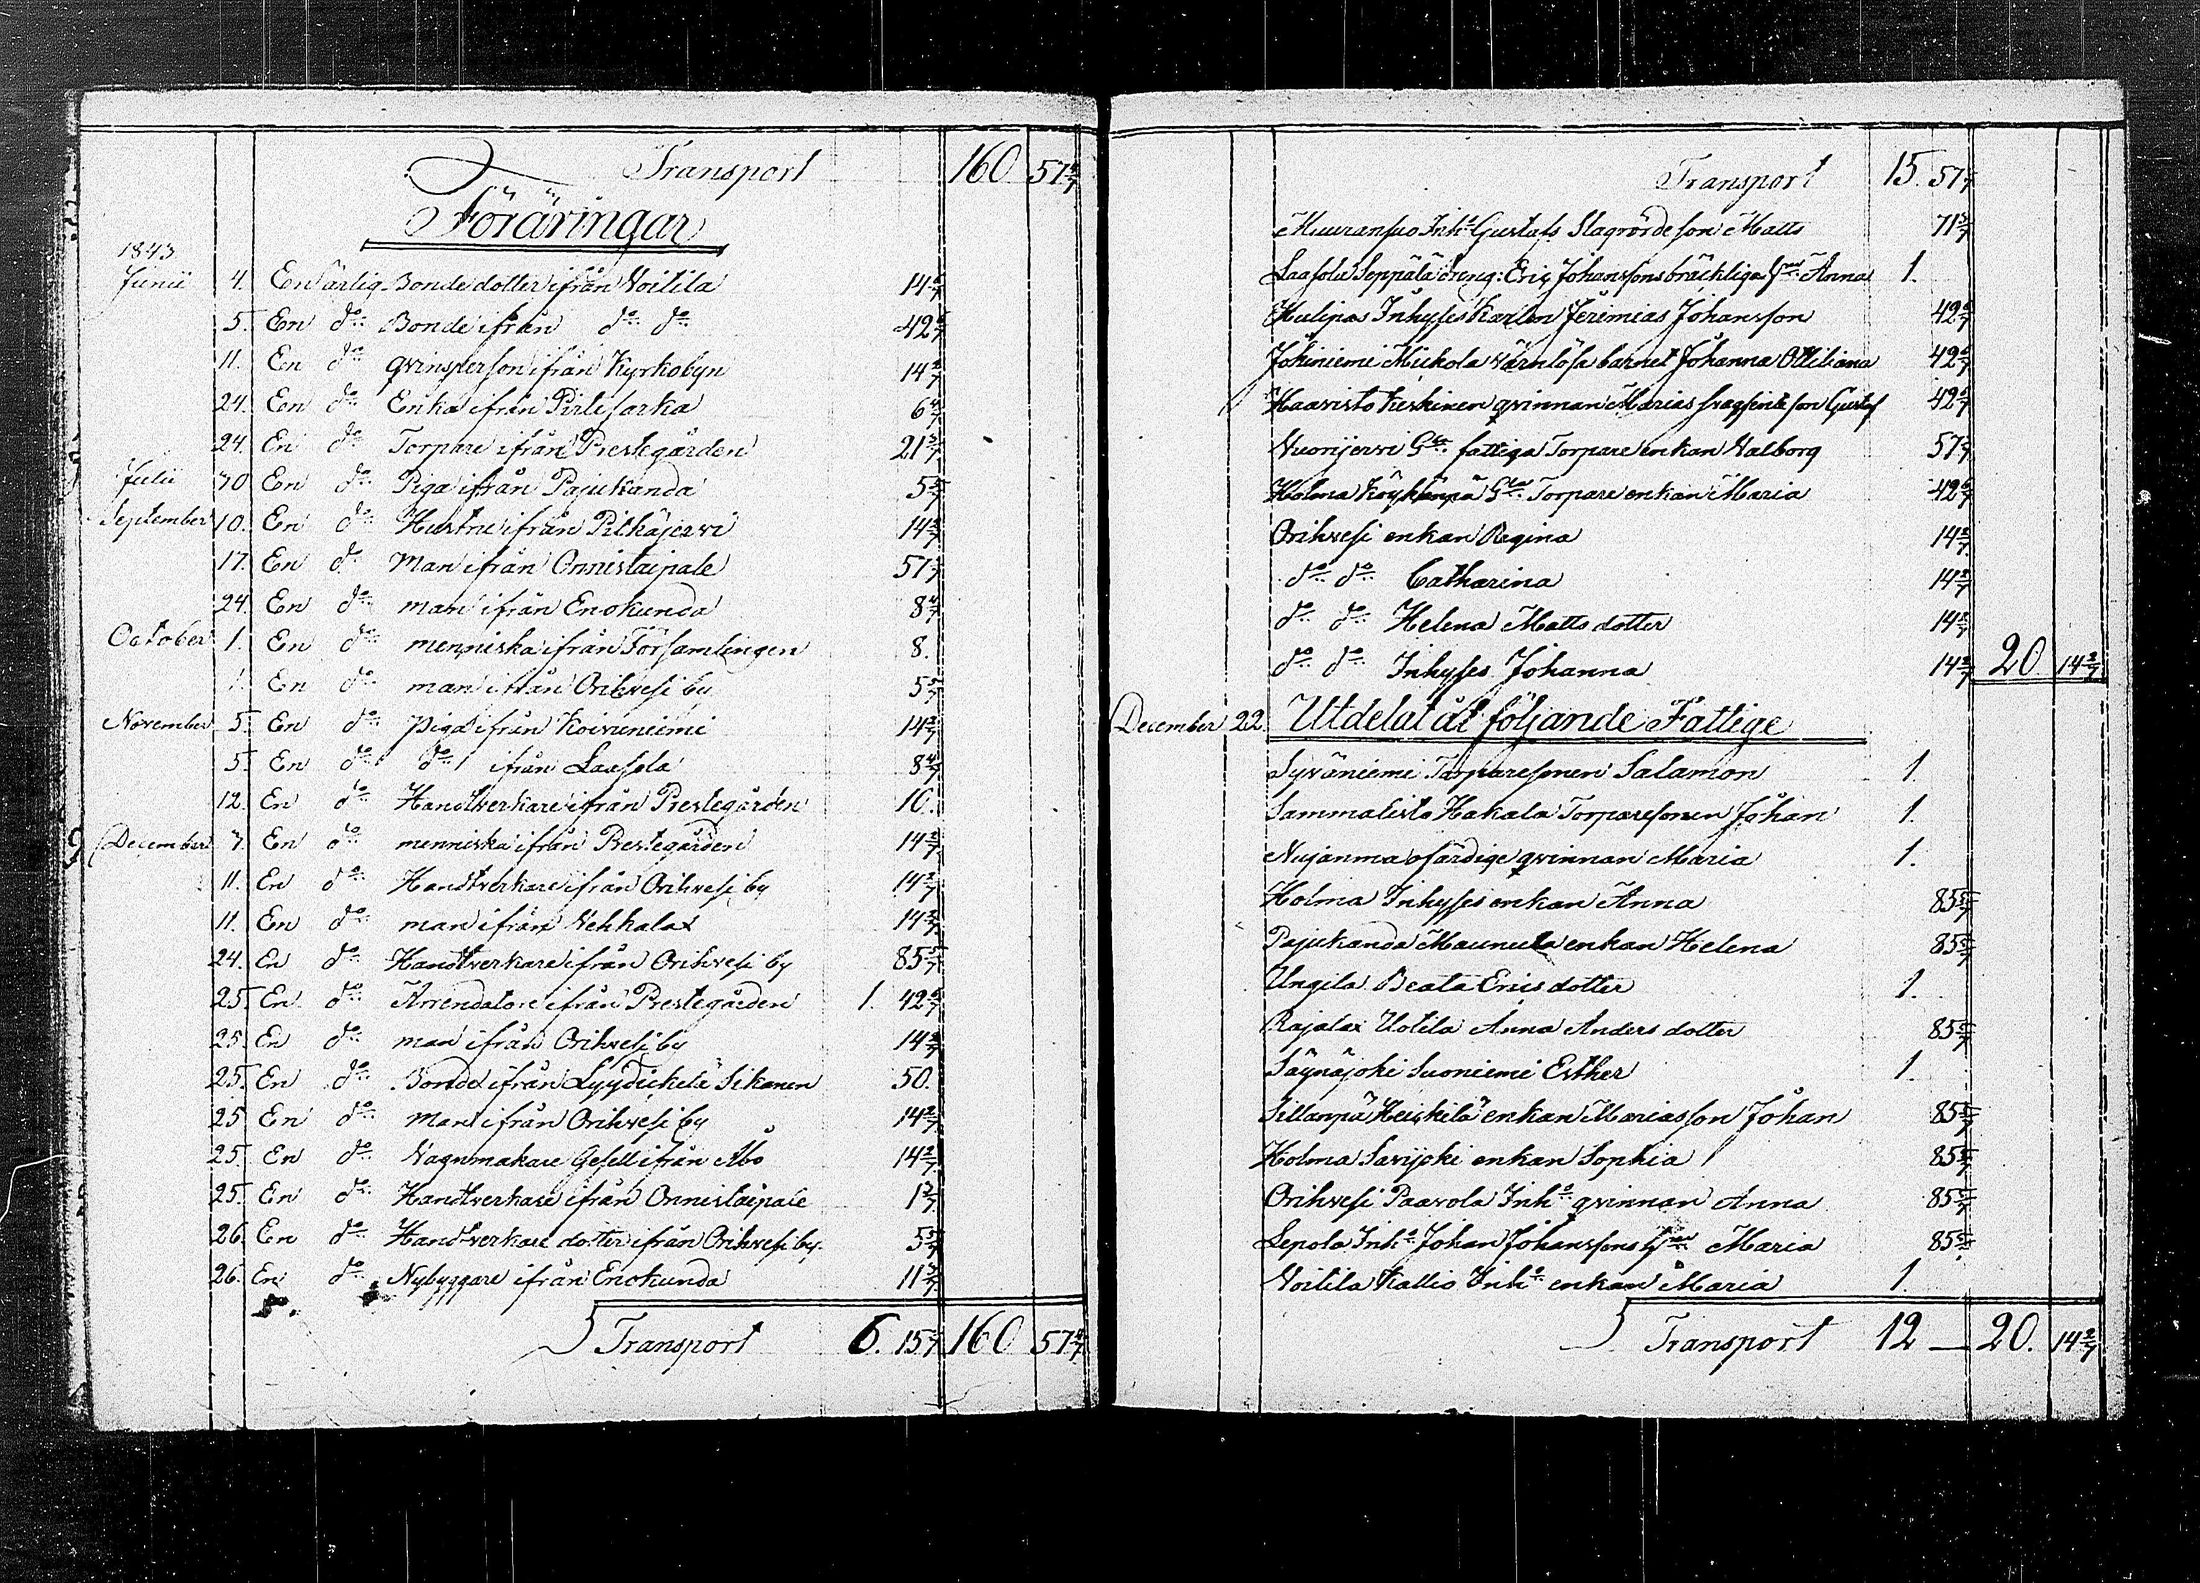 Transport 160 57 1/7
Föräringar
1843
Junii 4. En ärlig Bonde dotter ifrån Voitila 14 2/7
5. En do Bonde ifrån do do 42 6/7
11. En do qvinsperson ifrån Kyrkobyn 14 2/7
24. En do Enka ifrån Pirtesarka 6 4/7
24. En do Torpare ifrån Prestegården 21 3/7
Julii 30 En do Piga ifrån Pajukanda 5 5/7
September 10. En do Hustru ifrån Pitkäjervi 14 2/7
17. En do Man ifrån Onnistaipale 57 1/7
24. En do man ifrån Enokunda 8 4/7
October 1. En do menniska ifrån Församlingen 8.
1. En do man ifrån Orihvesi by 5 5/7
November 5. En do Piga ifrån Koivuniemi 14 2/7
5. En do do ifrån Laasola 8 4/7
12. En do Handtverkare ifrån Prestegården 10.
December 7. En do menniska ifrån Prestegården 14 2/7
11. En do Handtverkare ifrån Orihvesi by 14 2/7
11. En do man ifrån Vehkalax 14 2/7
24. En do Handtverkare ifrån Orihvesi by 85 5/7
25. En do Arrendatore ifrån Prestegården 1. 42 6/7
25. En do man ifrån Orihvesi by 14 2/7
25. En do Bonde ifrån Lyydickelä Sikanen 50.
25 En do man ifrån Orihvesi by 14 2/7
25. En do Vagnmakare Gesell ifrån Åbo 14 2/7
25. En do Handtverkare ifrån Onnistaipale 1 3/7
26. En do Handtverkare dotter ifrån Orihvesi by. 5 5/7
26. En do Nybyggare ifrån Enokunda 11 3/7
Transport 6. 15 5/7 160 57 1/7
Transport 15. 57 1/7
Inh. Gustafs Son Matts 71 3/7
Laasola Seppälä dreng: Eric Johanssons bräckliga Anna 1.
Hulipas Inhyses Karlen Jeremias Johansson 42 6/7
Jokiniemi Mickola värnlösa barnet Johanna Ottiliana 42 6/7
Haavisto Keskinen qvinnan Marias son Gustaf 42 6/7
Vuorijervi fattiga Torpare enkan Valborg 57 1/7
Holma Köykänpä Torpare enkan Maria 42 6/7
Orihvesi enkan Regina 14 2/7
do do Catharina 14 2/7
do do Helena Matts dotter 14 2/7
do do Inhyses Johanna 14 2/7 20 14 2/7
December 22. Utdelat åt följande Fattige
Syväniemi Torparesonen Salamon 1.
Sammalisto Hakala Torparesonen Johan 1.
Nujanma ofärdige qvinnan Maria 1.
Holma Inhyses enkan Anna 85 5/7
Pajukanda Maunula enkan Helena 85 5/7
Ungila Beata Erics dotter 1.
Rajalax Uotila Anna Anders dotter 85 5/7
Säynäjoki Suoniemi Esther 1.
Sillanpä Heickilä enkan Marias son Johan 85 5/7
Holma Savijoki enkan Sophia 85 5/7
Orihvesi Paavola Inh. qvinnan Anna 85 5/7
Lepola Inh. Johan Johanssons Maria 85 5/7
Voitila Kallio Inh. enkan Maria 1.
Transport 12 — 20. 14 2/7